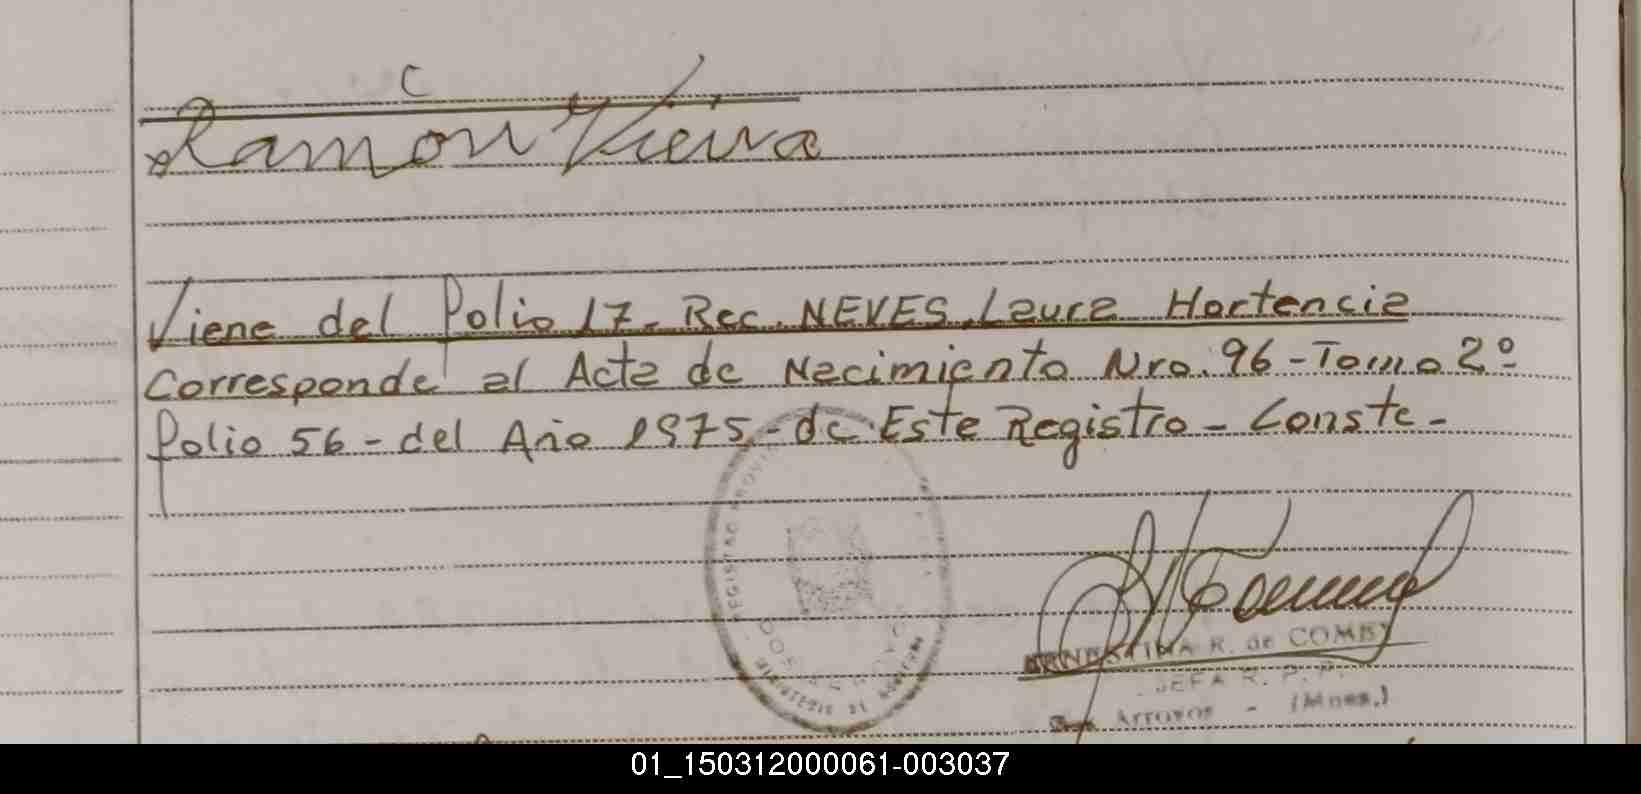 C
Ramon Vieira
Viene del Folio 17- Rec. NEVES, Laura Hortencia
Corresponde al Acta de Nacimiento Nro. 96 - Tomo 2º
folio 56 - del Año 1975 - de Este Registro - Conste -
REGISTRO PROVI
DOS ARROYOS
MINISTERIO DE
ERNESTINA R. de COMBY
JEFA R. P. P.
Dos Arroyos - (Mnes.)
01_150312000061-003037